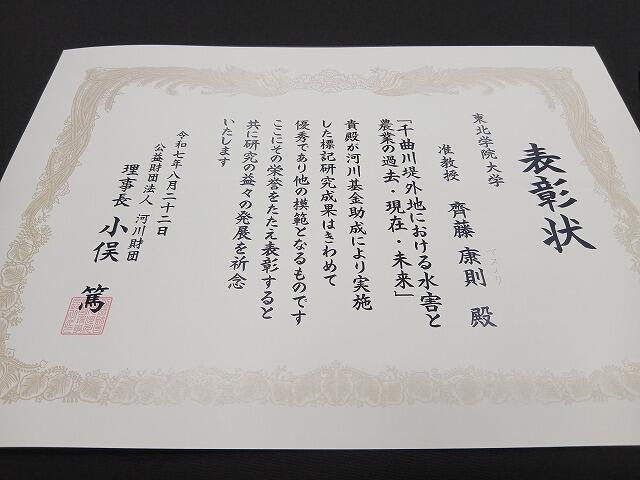 表彰状
東北学院大学
准教授 齊藤 康則 殿
「千曲川堤外地における水害と
農業の過去・現在・未来」
貴殿が河川基金助成により実施
した標記研究成果はきわめて
優秀であり他の模範となるものです
ここにその栄誉をたたえ表彰すると
共に研究の益々の発展を祈念
いたします
令和七年八月二十二日
公益財団法人 河川財団
理事長 小俣 篤